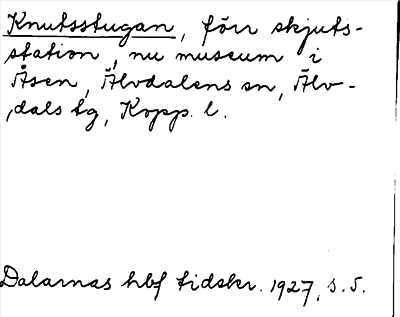 Knutsstugan, förr skjuts-
station, nu museum i
Åsen, Älvdalens sn, Älv-
dals tg, Kopp. l.
Dalarnas hbf tidskr. 1927, s. 5.